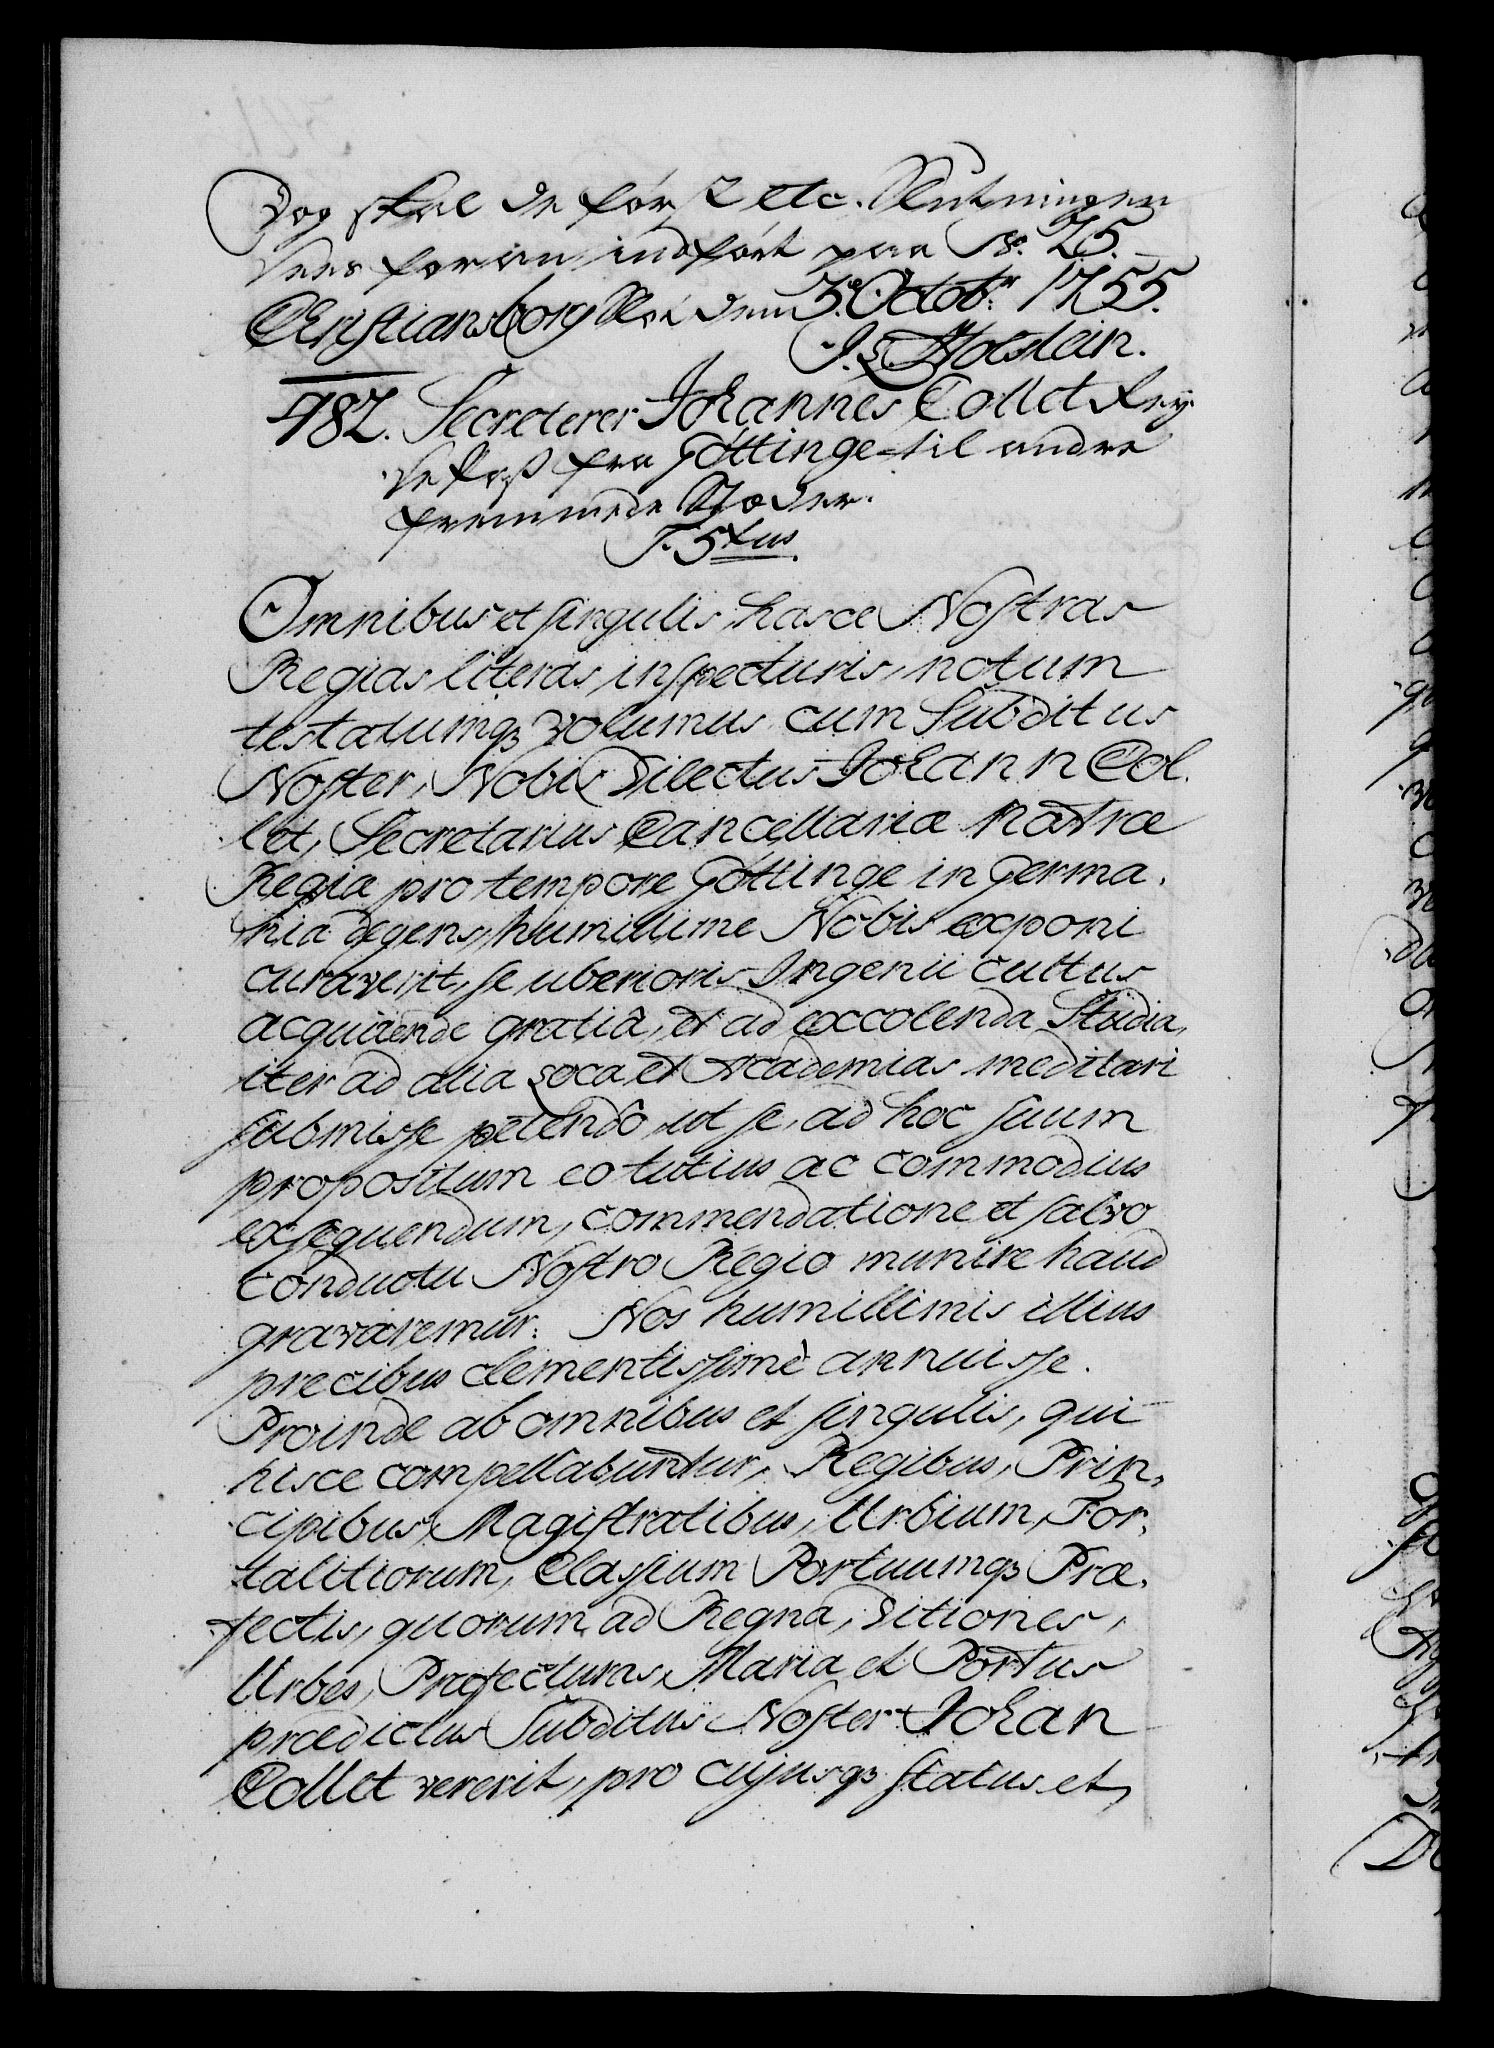 Dog skal de først etc. Slutningen
sees foran indført paa No. 25.
Christiansborg Slot dem 3.e Octobr 1755.
J. L. Holstein.
482. Secreterer Johannes Collet Rey-
se Pass fra Göttinge til andre
fremmede Stæder.
F. 5tus
Omnibus et singulis hasce Nostras
Regias literas inspecturis, notum
testatumq; volumus cum Subditus
Noster, Nobis Dilectus Johann Col-
let, Secretarius Cancellariæ Nostræ
Regiæ pro tempore Göttinge in Germa-
nia degens, humillime Nobis exponi
curaverit, se uberioris Ingenii cultus
acquirende gratiâ, et ad excolenda Studia,
iter ad alia Loca et Academias meditari
submisse petendo, ut se, ad hoc suum
propositum eo tutius ac commodius
exsequendum, commendatione et salvo
Conductu Nostro Regio munire haud
gravaremur: Nos humillimis illius
precibus clementissimè annuisse.
Proinde ab omnibus et singulis, qui
hisce compellabuntur, Regibus, Prin-
cipibus, Magistratibus, Urbium, For-
talitiorum, Classium Portuumq; Præ-
fectis, quorum ad Regna, Ditiones,
Urbes, Præfecturas, Maria et Portus
prædictus Subditus Noster Johan
Collet venerit, pro cujusq; Status et